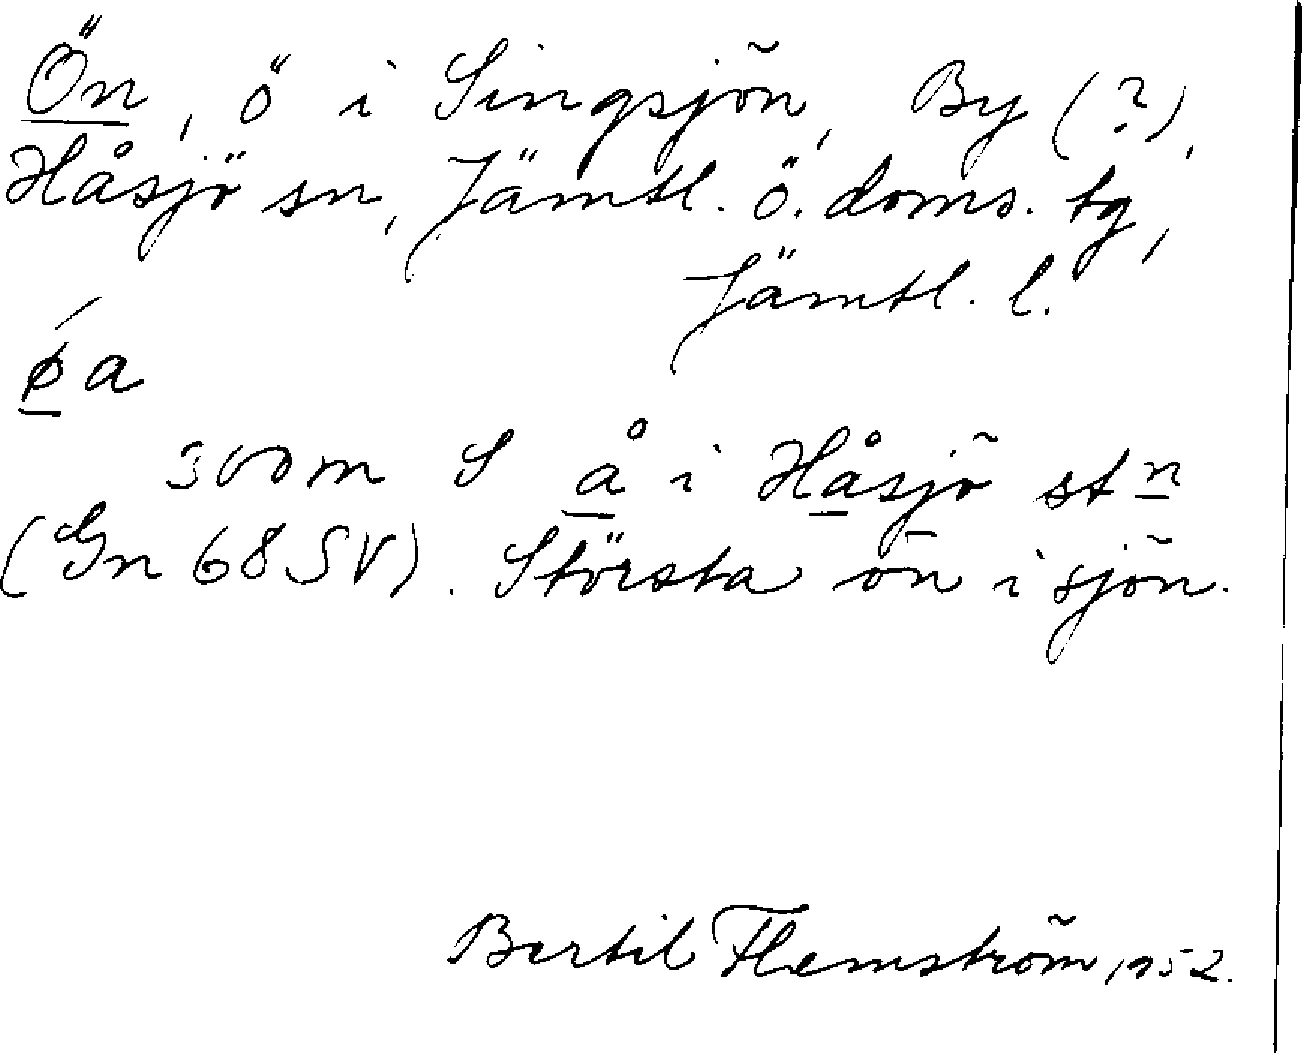 Ön, ö i Singsjön, By (?),
Håsjö sn, Jämtl. ö. doms. tg,
Jämtl. l.
ǿa
300m S å i Håsjö stn
(Gn 68 SV). Största ön i sjön.
Bertil Flemström, 1952.